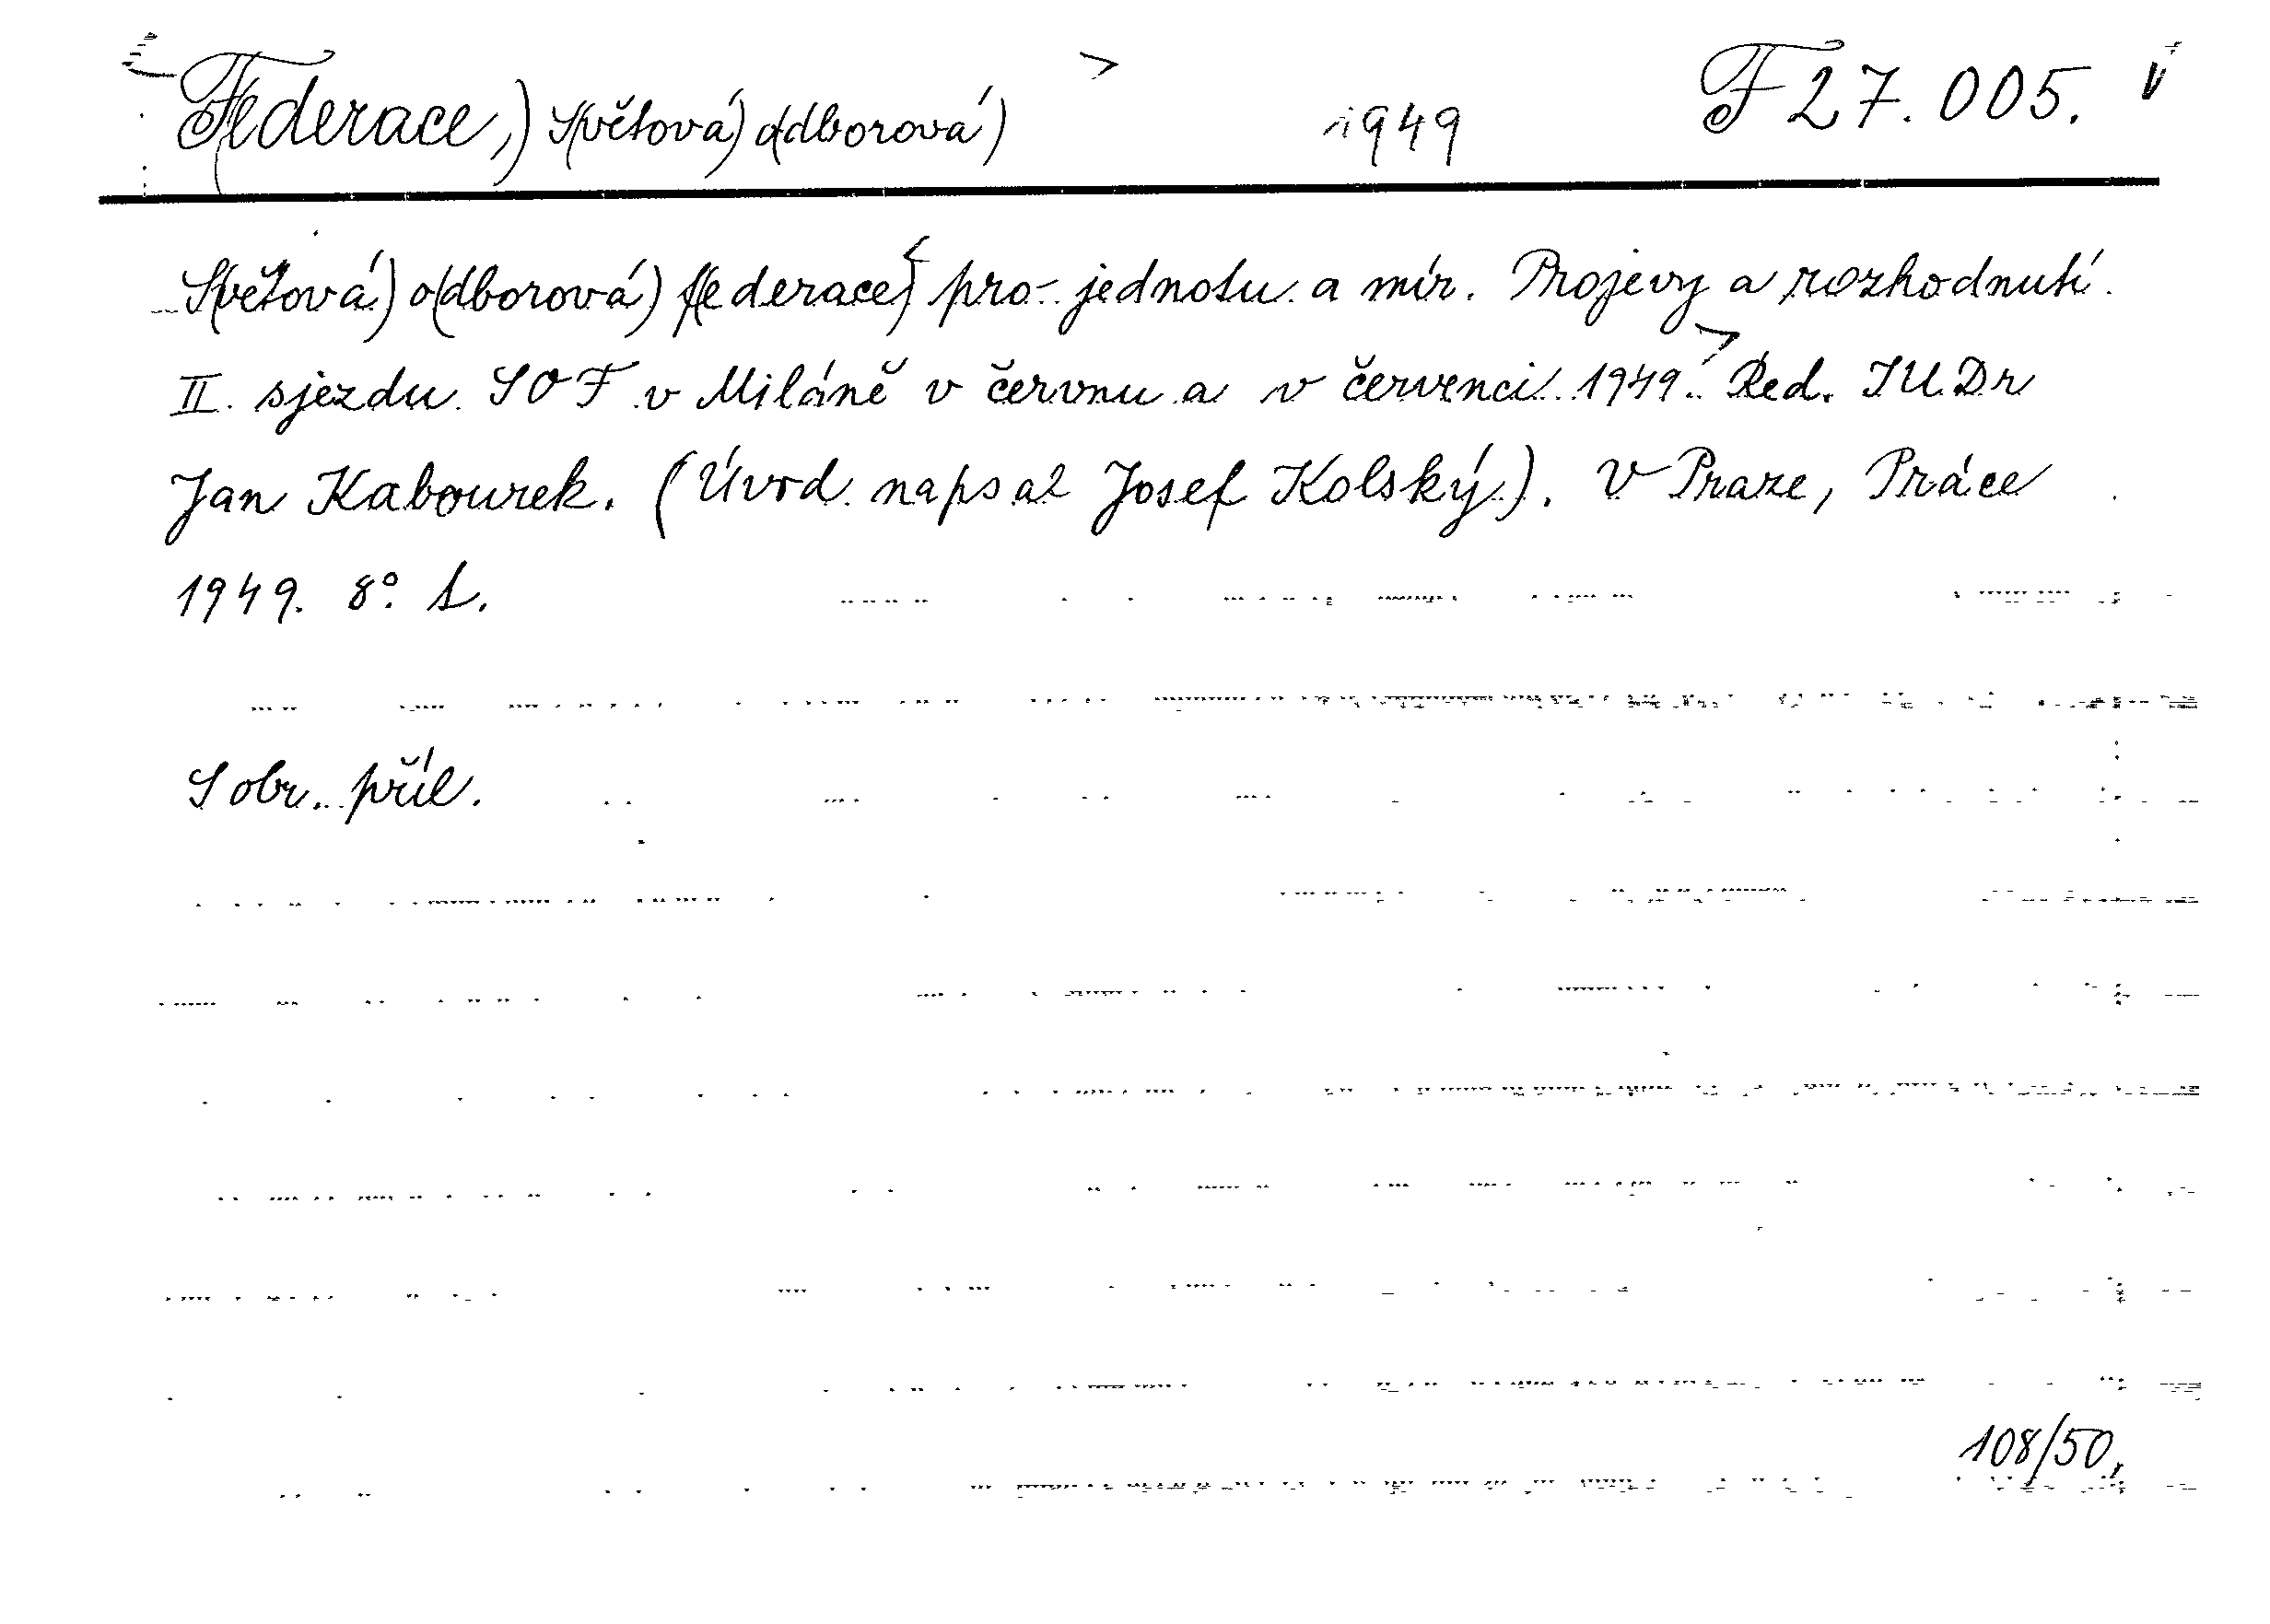 F(ederace,) S(větová) o(dborová) > 1949 F 27.005.
S(větová) o(dborová) f(ederace) pro jednotu a mír. Projevy a rozhodnutí
II. sjezdu SOF v Miláně v červnu a v červenci 1949. Red. JUDr
Jan Kabourek. (Úvod napsal Josef Kolský). V Praze, Práce
1949. 8°.
S obr. příl.
108/50,